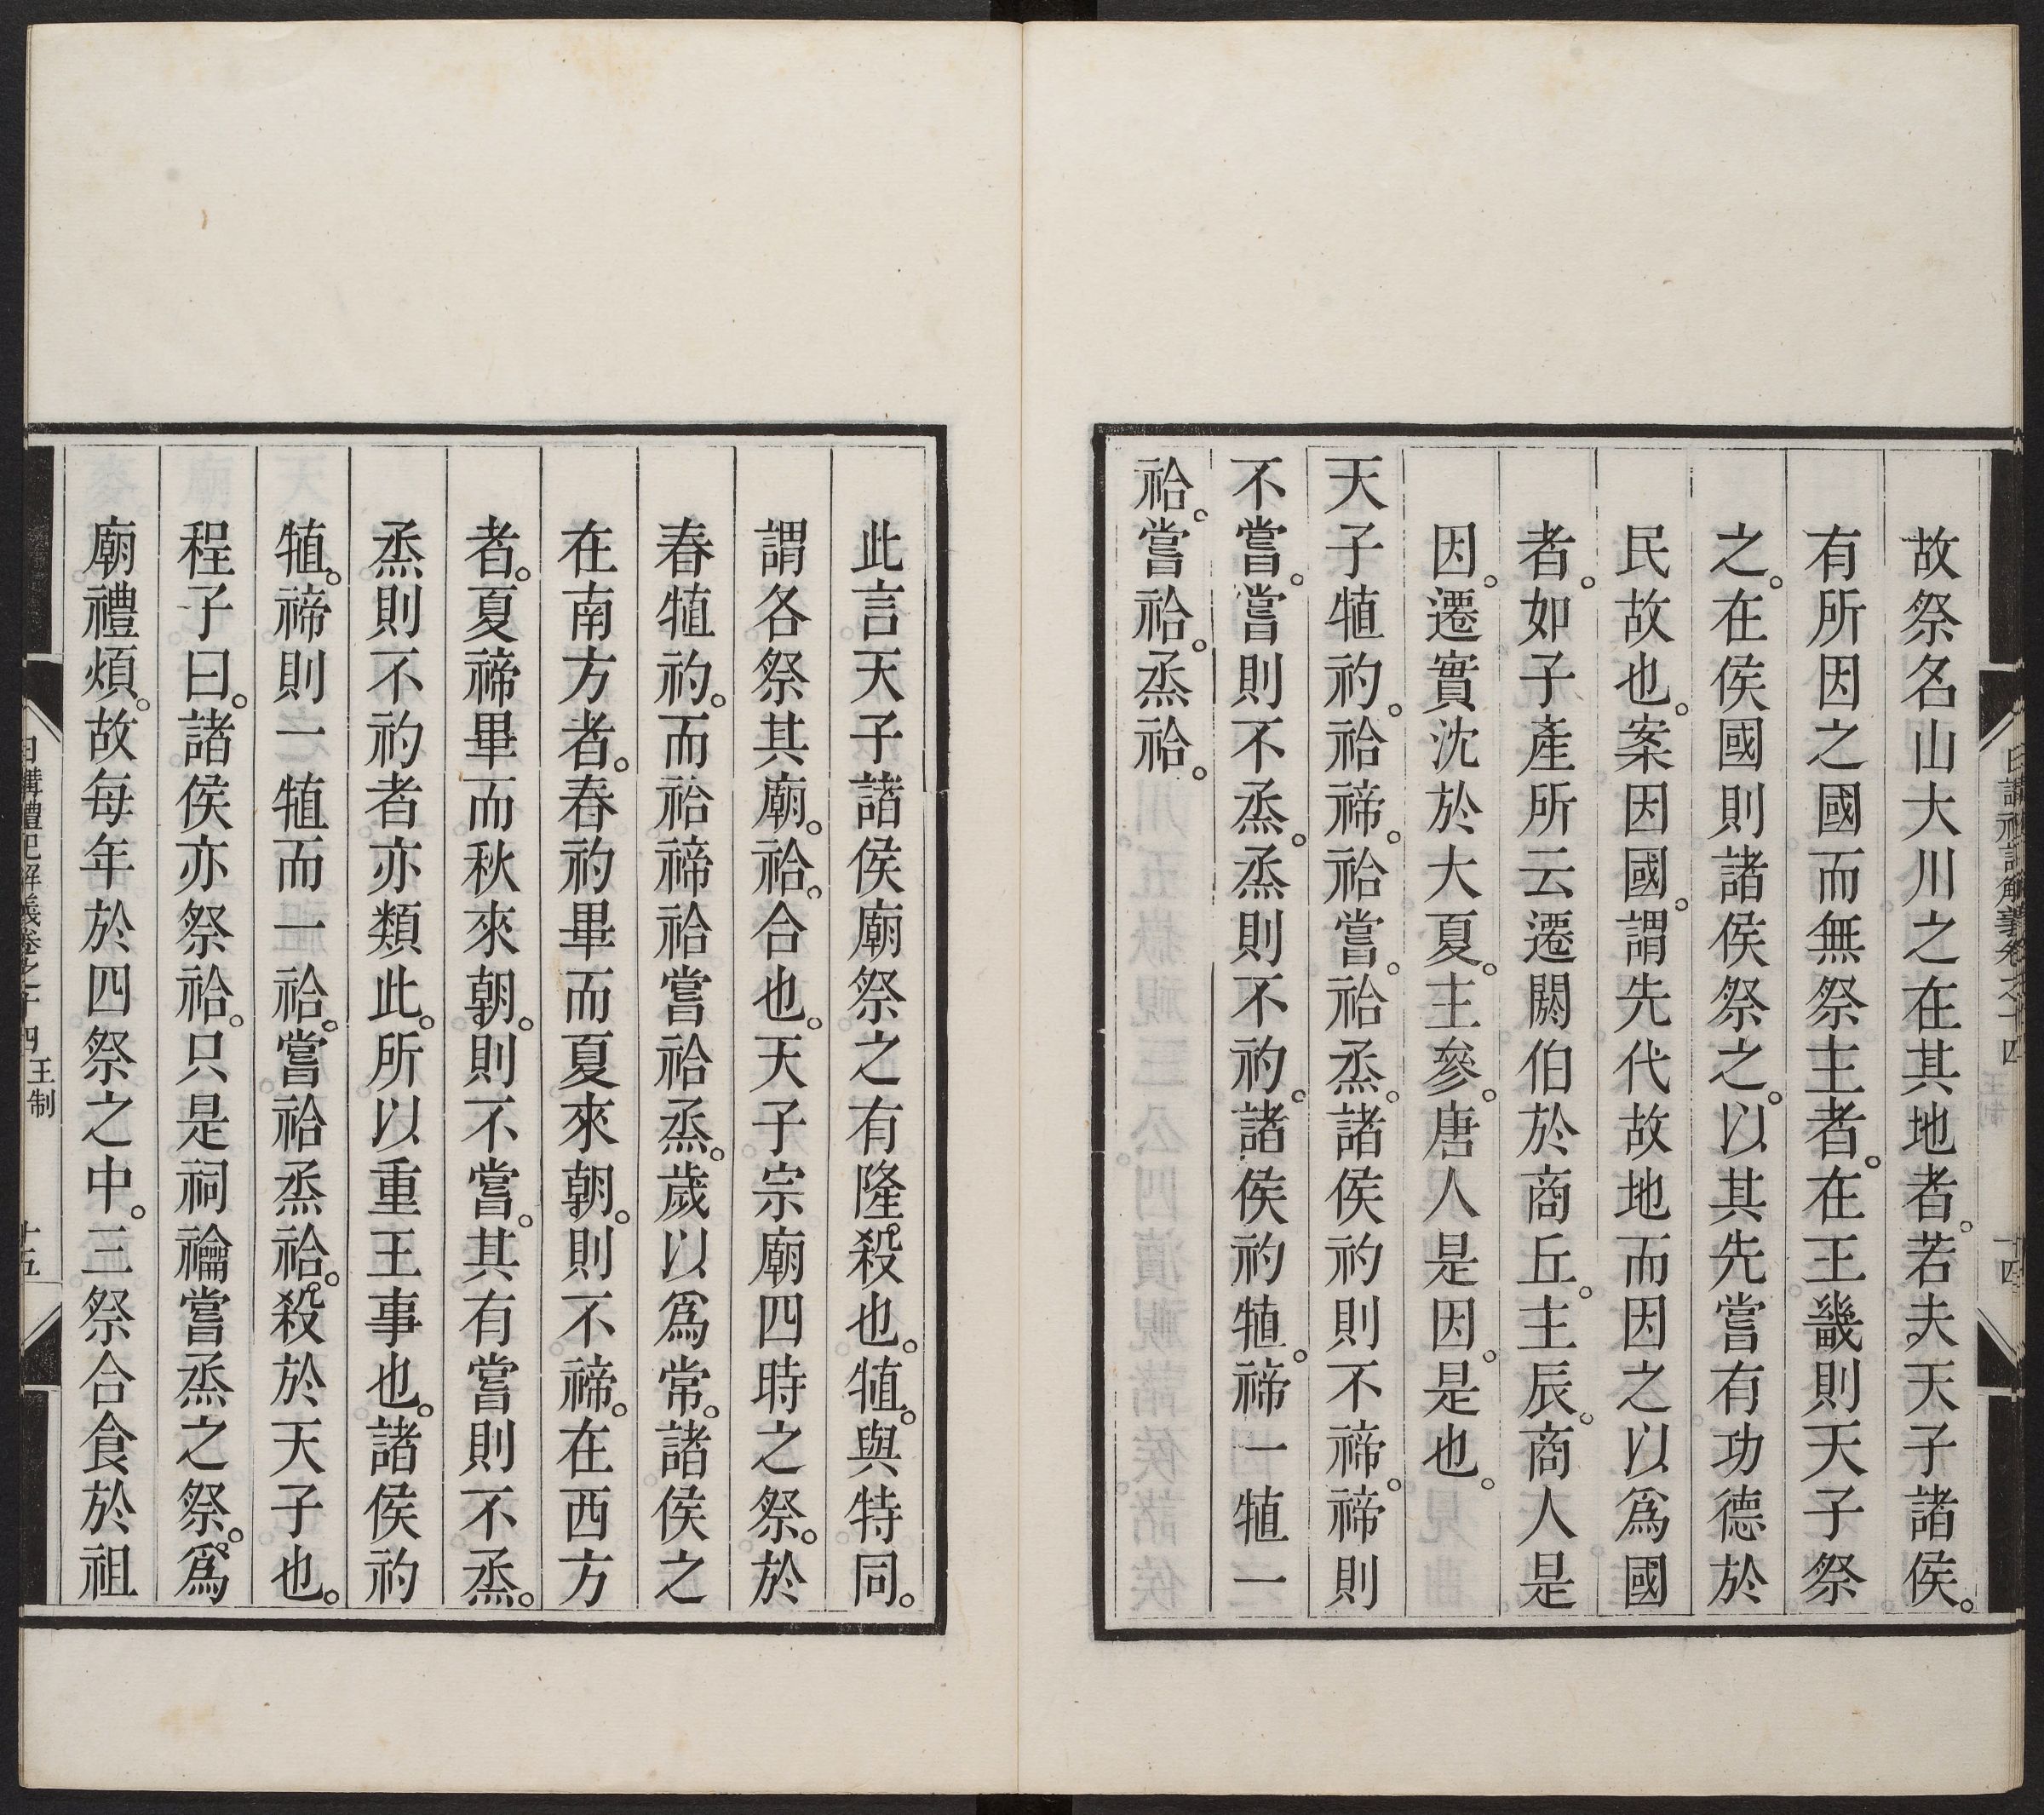 故祭名山大川之在其地者。若夫天子諸侯。
有所因之國而無祭主者。在王畿則天子祭
之。在侯國則諸侯祭之。以其先嘗有功德於
民故也。案因國。謂先代故地而因之以爲國
者。如子產所云遷閼伯於商丘。主辰。商人是
因。遷實沈於大夏。主參。唐人是因。是也。
天子犆礿。祫禘。祫嘗。祫烝。諸侯礿則不禘。禘則
不嘗。嘗則不烝。烝則不礿。諸侯礿犆。禘一犆一
祫。嘗祫。烝祫。
此言天子諸侯廟祭之有隆殺也。犆。與特同。
謂各祭其廟。祫。合也。天子宗廟四時之祭。於
春犆礿。而祫禘祫嘗祫烝。歲以爲常。諸侯之
在南方者。春礿畢而夏來朝。則不禘。在西方
者。夏禘畢而秋來朝。則不嘗。其有嘗則不烝。
烝則不礿者亦類此。所以重王事也。諸侯礿
犆。禘則一犆而一祫。嘗祫烝祫。殺於天子也。
程子曰。諸侯亦祭祫。只是祠禴嘗烝之祭。爲
廟禮煩。故每年於四祭之中。三祭合食於祖
日講禮記解義卷之十四 王制 十五